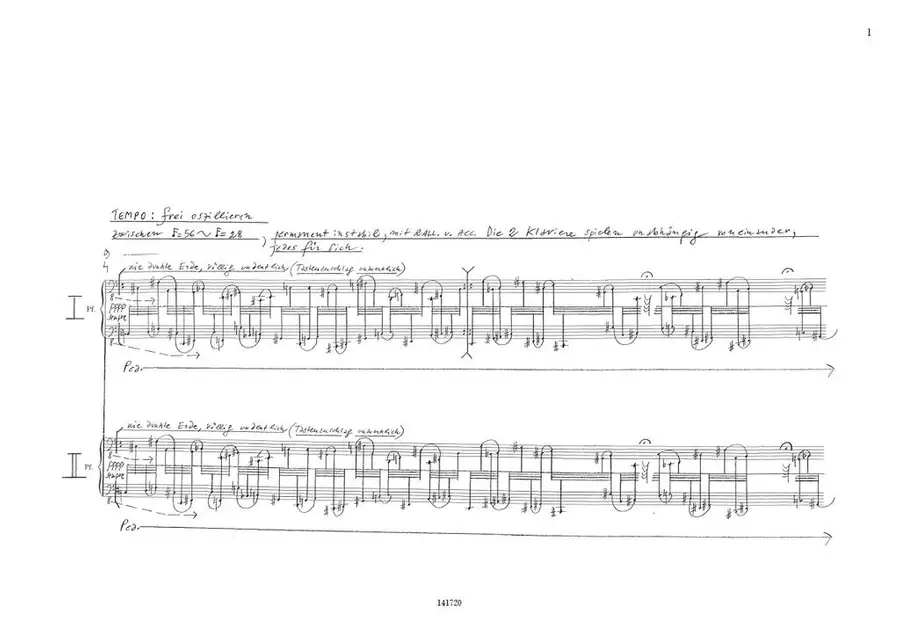 1
TEMPO: frei oszillieren
zwischen ♪=56 ~ ♪=28, permanent instabil, mit RALL. u. ACC. Die 2 Klaviere spielen unabhängig voneinander,
jedes für sich.
wie dunkle Erde, völlig undeutlich (Tastenanschlag unmerklich)
I Pf.
8
pppp
sempre
8
Ped.
wie dunkle Erde, völlig undeutlich (Tastenanschlag unmerklich)
II Pf.
8
pppp
sempre
8
Ped.
141720